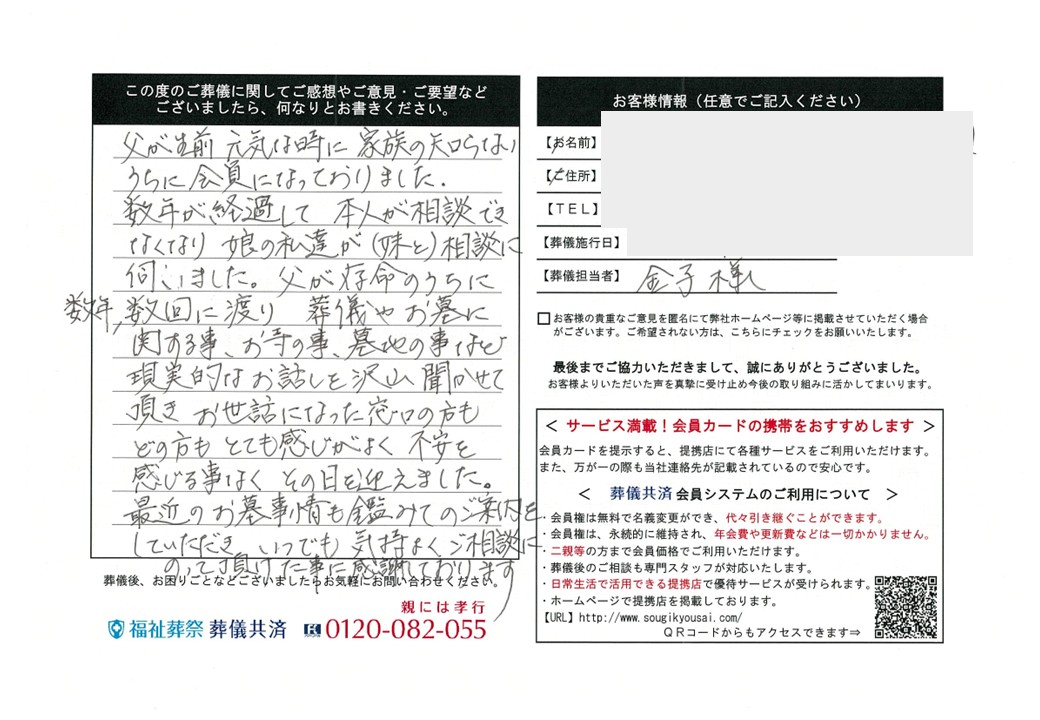 この度のご葬儀に関してご感想やご意見・ご要望など
ございましたら、何なりとお書きください。
父が生前 元気な時に 家族の知らない
うちに会員になっておりました.
数年が経過して 本人が相談でき
なくなり 娘の私達が(妹と)相談に
伺いました。父が存命のうちに
数年,数回に渡り 葬儀やお墓に
関する事、お寺の事、墓地の事など
現実的なお話しを沢山聞かせて
頂き お世話になった窓口の方も
どの方も とても感じがよく 不安を
感じる事なく その日を迎えました。
最近のお墓事情も鑑みてのご案内を
していただき、いつでも 気持よくご相談に
のって頂けた事に感謝しております
葬儀後、お困りごとなどございましたらお気軽にお問い合わせください。
親には孝行
福祉葬祭 葬儀共済 0120-082-055
お客様情報(任意でご記入ください)
【お名前】
【ご住所】
【TEL】
【葬儀施行日】
【葬儀担当者】 金子様
□お客様の貴重なご意見を匿名にて弊社ホームページ等に掲載させていただく場合
がございます。ご希望されない方は、こちらにチェックをお願いいたします。
最後までご協力いただきまして、誠にありがとうございました。
お客様よりいただいた声を真摯に受け止め今後の取り組みに活かしてまいります。
< サービス満載!会員カードの携帯をおすすめします >
会員カードを提示すると、提携店にて各種サービスをご利用いただけます。
また、万が一の際も当社連絡先が記載されているので安心です。
< 葬儀共済 会員システムのご利用について >
・会員権は無料で名義変更ができ、代々引き継ぐことができます。
・会員権は、永続的に維持され、年会費や更新費などは一切かかりません。
・二親等の方まで会員価格でご利用いただけます。
・葬儀後のご相談も専門スタッフが対応いたします。
・日常生活で活用できる提携店で優待サービスが受けられます。
・ホームページで提携店を掲載しております。
【URL】http://www.sougikyousai.com/
QRコードからもアクセスできます⇒